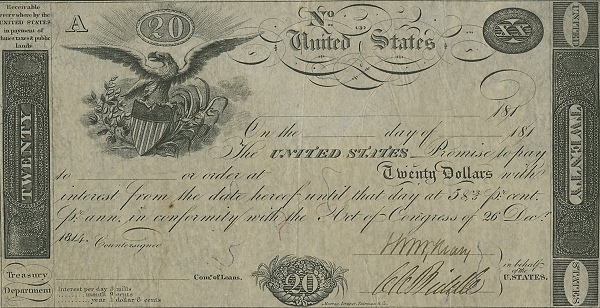 Receivable
everywhere by the
UNITED STATES
in payment of
duties taxes & public
lands
A
20
No.
United States
XX
UNITED
181
TWENTY
On the day of 181
The UNITED STATES Promise to pay
to or order at Twenty Dollars with
interest from the date hereof until that day at 5 8/2 pr. cent.
Pr. ann. in conformity with the Act of Congress of 26 Dec.r
1814. Countersigned
TWENTY
Treasury
Department
Interest per day 3 mills
month 9 cents
year 1 dollar 8 cents
Com.r of Loans.
20
Murray, Draper, Fairman & Co.
in behalf
of the
U.STATES.
STATES